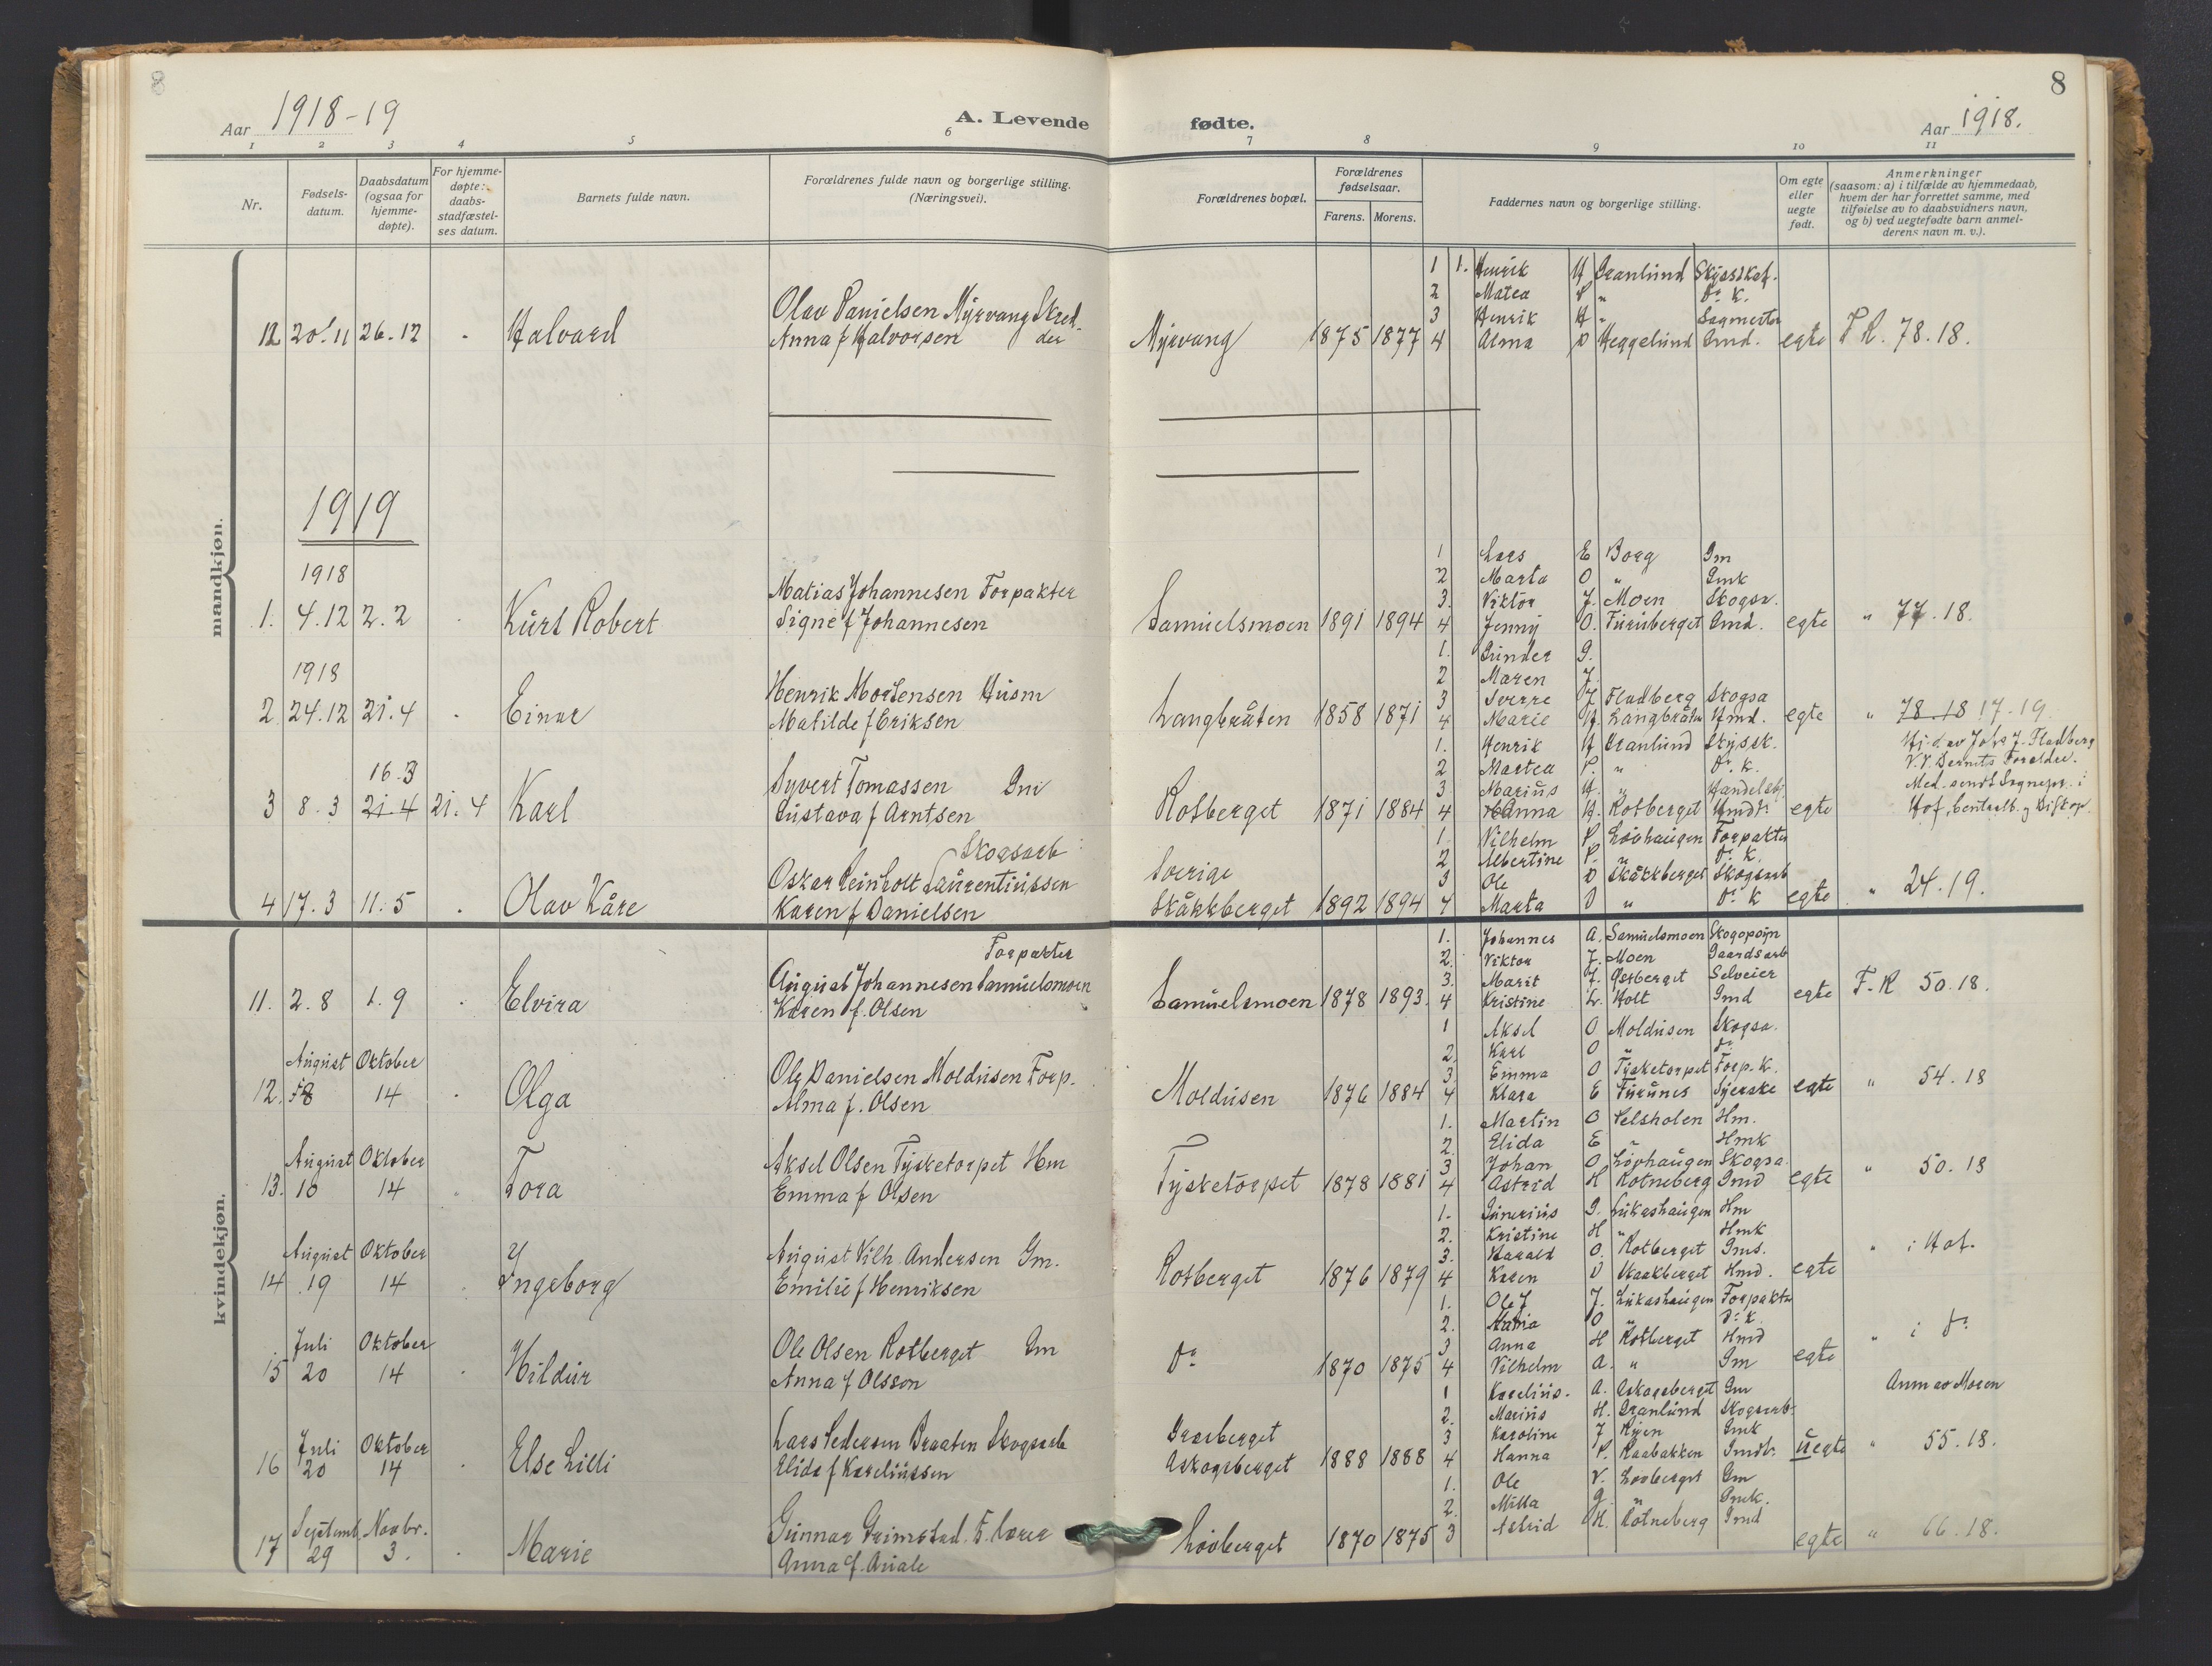 8
8
Aar 1918-19
A. Levende
fødte.
Aar 1918.
1 2 3 4 5 6 7 8 9 10 11
Nr.
Fødsels-datum.
Daabsdatum (ogsaa for hjemme-døpte).
For hjemme-døpte: daabs-stadfæstel-ses datum.
Barnets fulde navn.
Forældrenes fulde navn og borgerlige stilling. (Næringsvei).
Forældrenes bopæl.
Forældrenes fødselsaar.
Farens. Morens.
Faddernes navn og borgerlige stilling.
Om egte eller uegte født.
Anmerkninger (saasom: a) i tilfælde av hjemmedaab, hvem der har forrettet samme, med tilføielse av to daabsvidners navn, og b) ved uegtefødte barn anmel-derens navn m. v.).
mandkjøn.
12 20.11 26.12 Halvard
Olav Danielsen Myrvang Skred-
der
Anna f Halvorsen
Myrvang 1875 1877
1 Henrik H Granlund Skysskaf.
2 Matea P " Do K.
3 Henrik H " Sagmester
4 Alma O Heggelund Gmd. egte F R. 78.18.
1919
1918
1. 4.12 2.2 Kurt Robert
Matias Johannesen Forpakter
Signe f Johannesen
Samuelsmoen 1891 1894
1 Lars E Borg Gm
2 Marta O " Gmk
3. Viktor J. Moen Skogsa.
4 Jenny O. Furuberget Gmd. egte " 77.18.
1918
2 24.12 21.4 Einar
Henrik Mortensen Husm
Matilde f Eriksen
Langbråten 1858 1871
1. Gunder G.
2 Maren J.
3 Sverre J Fladberg Skogsa
4 Marie H. Langbråten Hmd. egte " 78.18 17.19
3 8.3 16.3 21.4 21.4 Karl
Syvert Tomassen Gm
Gustava f Arntsen
Rotberget 1871 1884
1. Henrik H Granlund Skyssk.
2 Martea P. " Do. K.
3 Marius H. " Handelsbj
4 Hanna H. Rotberget Hmdt. egte
Hj.d. av Johs J. Fladberg
V.V. Barnets Foreldre.
Med. sendt Sognepr. i
Hof, Centralb. og Biskop.
4 17.3 11.5 Olav Kåre
Skogsarb
Oskar Reinholt Laurentiussen
Karen f Danielsen
Sverige
Skåkkberget 1892 1894
1. Vilhelm P. Løvhaugen Forpakter
2 Albertine P. " Do. K.
3 Ole O Skåkkberget Skogsarb
4 Marta O " Do. K egte " 24.19.
kvindekjøn.
11. 2.8 1.9 Elvira
Forpakter
August Johannesen Samuelsmoen
Karen f. Olsen
Samuelsmoen 1878 1893
1. Johannes A. Samuelsmoen
2. Viktor J. Moen Gaardsarb
3. Marit J. Østberget Selveier
4 Kristine L. Holt Gmd egte F.R 50.18.
August Oktober
12. 14 Olga
Ole Danielsen Moldusen Forp.
Alma f. Olsen
Moldusen 1876 1884
1 Aksel O Moldusen Skogsa.
2. Karl O " Do
3 Emma O Tysketorpet Forp. K.
4 Klara E Furunes Syerske egte " 54.18
August Oktober
13. 10 14 Tora
Aksel Olsen Tysketorpet Hm
Emma f Olsen
Tysketorpet 1878 1881
1. Martin O Velsholen Hm.
2. Elida E " Hmk
3 Johan O Løvhaugen Skogsa.
4 Astrid H Rotneberg Gmd egte " 50.18
August Oktober
14 19 14 Ingeborg
August Vilh. Andersen Gm.
Emilie f Henriksen
Rotberget 1876 1879
1. Gunerius G. Lukashaugen Hm
2. Kristine H " Hmk
3. Harald O. Rotberget Gms.
4 Karen O Skaakberget Hmd. egte " i Hof.
Juli Oktober
15 20 14 Hildur
Ole Olsen Rotberget Gm
Anna f Olsson
Do 1870 1875
1. Ole J J. Lukashaugen Forpakter
2. Maria O " Do. K.
3 Anna H Rotberget Hmd
4 Vilhelm A. " Gm egte " i Do
Juli Oktober
16 20 14 Else Lilli
Lars Pedersen Braaten Skogsarb
Elida f Kareliussen
Graaberget
Askogsberget 1888 1888
1 Karelius. A. Askogsberget Gm
2. Marius H. Granlund Skogsarb.
3 Karoline J Ryen Gmk
4 Hanna P. Raabakken Gmdt. uegte " 55.18.
Anm av Moren
Septemb. Novbr.
17 29 3. Marie
Gunnar Grimstad. F. lærer
Anna f.
Løvberget 1870 1875
1. Ole V. Løvberget Gm
2. Milla G. " Gmk.
3 Astrid H. Rotneberg Gmd
egte " 66.18.